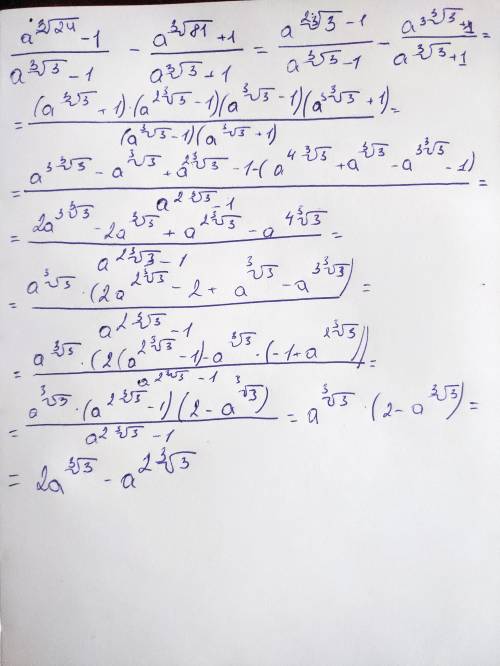 \frac{a^{\sqrt[3]{24}}-1}{a^{\sqrt[3]{3}}-1} - \frac{a^{\sqrt[3]{81}}+1}{a^{\sqrt[3]{3}}+1} = \frac{a^{2\sqrt[3]{3}}-1}{a^{\sqrt[3]{3}}-1} - \frac{a^{3\sqrt[3]{3}}+1}{a^{\sqrt[3]{3}}+1} =
= \frac{(a^{\sqrt[3]{3}}+1)\cdot(a^{2\sqrt[3]{3}}-1)(a^{\sqrt[3]{3}}-1)(a^{3\sqrt[3]{3}}+1)}{(a^{\sqrt[3]{3}}-1)(a^{\sqrt[3]{3}}+1)} =
= \frac{a^{3\sqrt[3]{3}}-a^{\sqrt[3]{3}}+a^{2\sqrt[3]{3}}-1-(a^{4\sqrt[3]{3}}+a^{\sqrt[3]{3}}-a^{3\sqrt[3]{3}}-1)}{a^{2\sqrt[3]{3}}-1} =
= \frac{2a^{3\sqrt[3]{3}}-2a^{\sqrt[3]{3}}+a^{2\sqrt[3]{3}}-a^{4\sqrt[3]{3}}}{a^{2\sqrt[3]{3}}-1} =
= \frac{a^{\sqrt[3]{3}}\cdot(2a^{2\sqrt[3]{3}}-2+a^{\sqrt[3]{3}}-a^{3\sqrt[3]{3}})}{a^{2\sqrt[3]{3}}-1} =
= \frac{a^{\sqrt[3]{3}}\cdot(2(a^{2\sqrt[3]{3}}-1)-a^{\sqrt[3]{3}}\cdot(-1+a^{2\sqrt[3]{3}}))}{a^{2\sqrt[3]{3}}-1} =
= \frac{a^{\sqrt[3]{3}}\cdot(a^{2\sqrt[3]{3}}-1)(2-a^{\sqrt[3]{3}})}{a^{2\sqrt[3]{3}}-1} = a^{\sqrt[3]{3}}\cdot(2-a^{\sqrt[3]{3}}) =
= 2a^{\sqrt[3]{3}}-a^{2\sqrt[3]{3}}